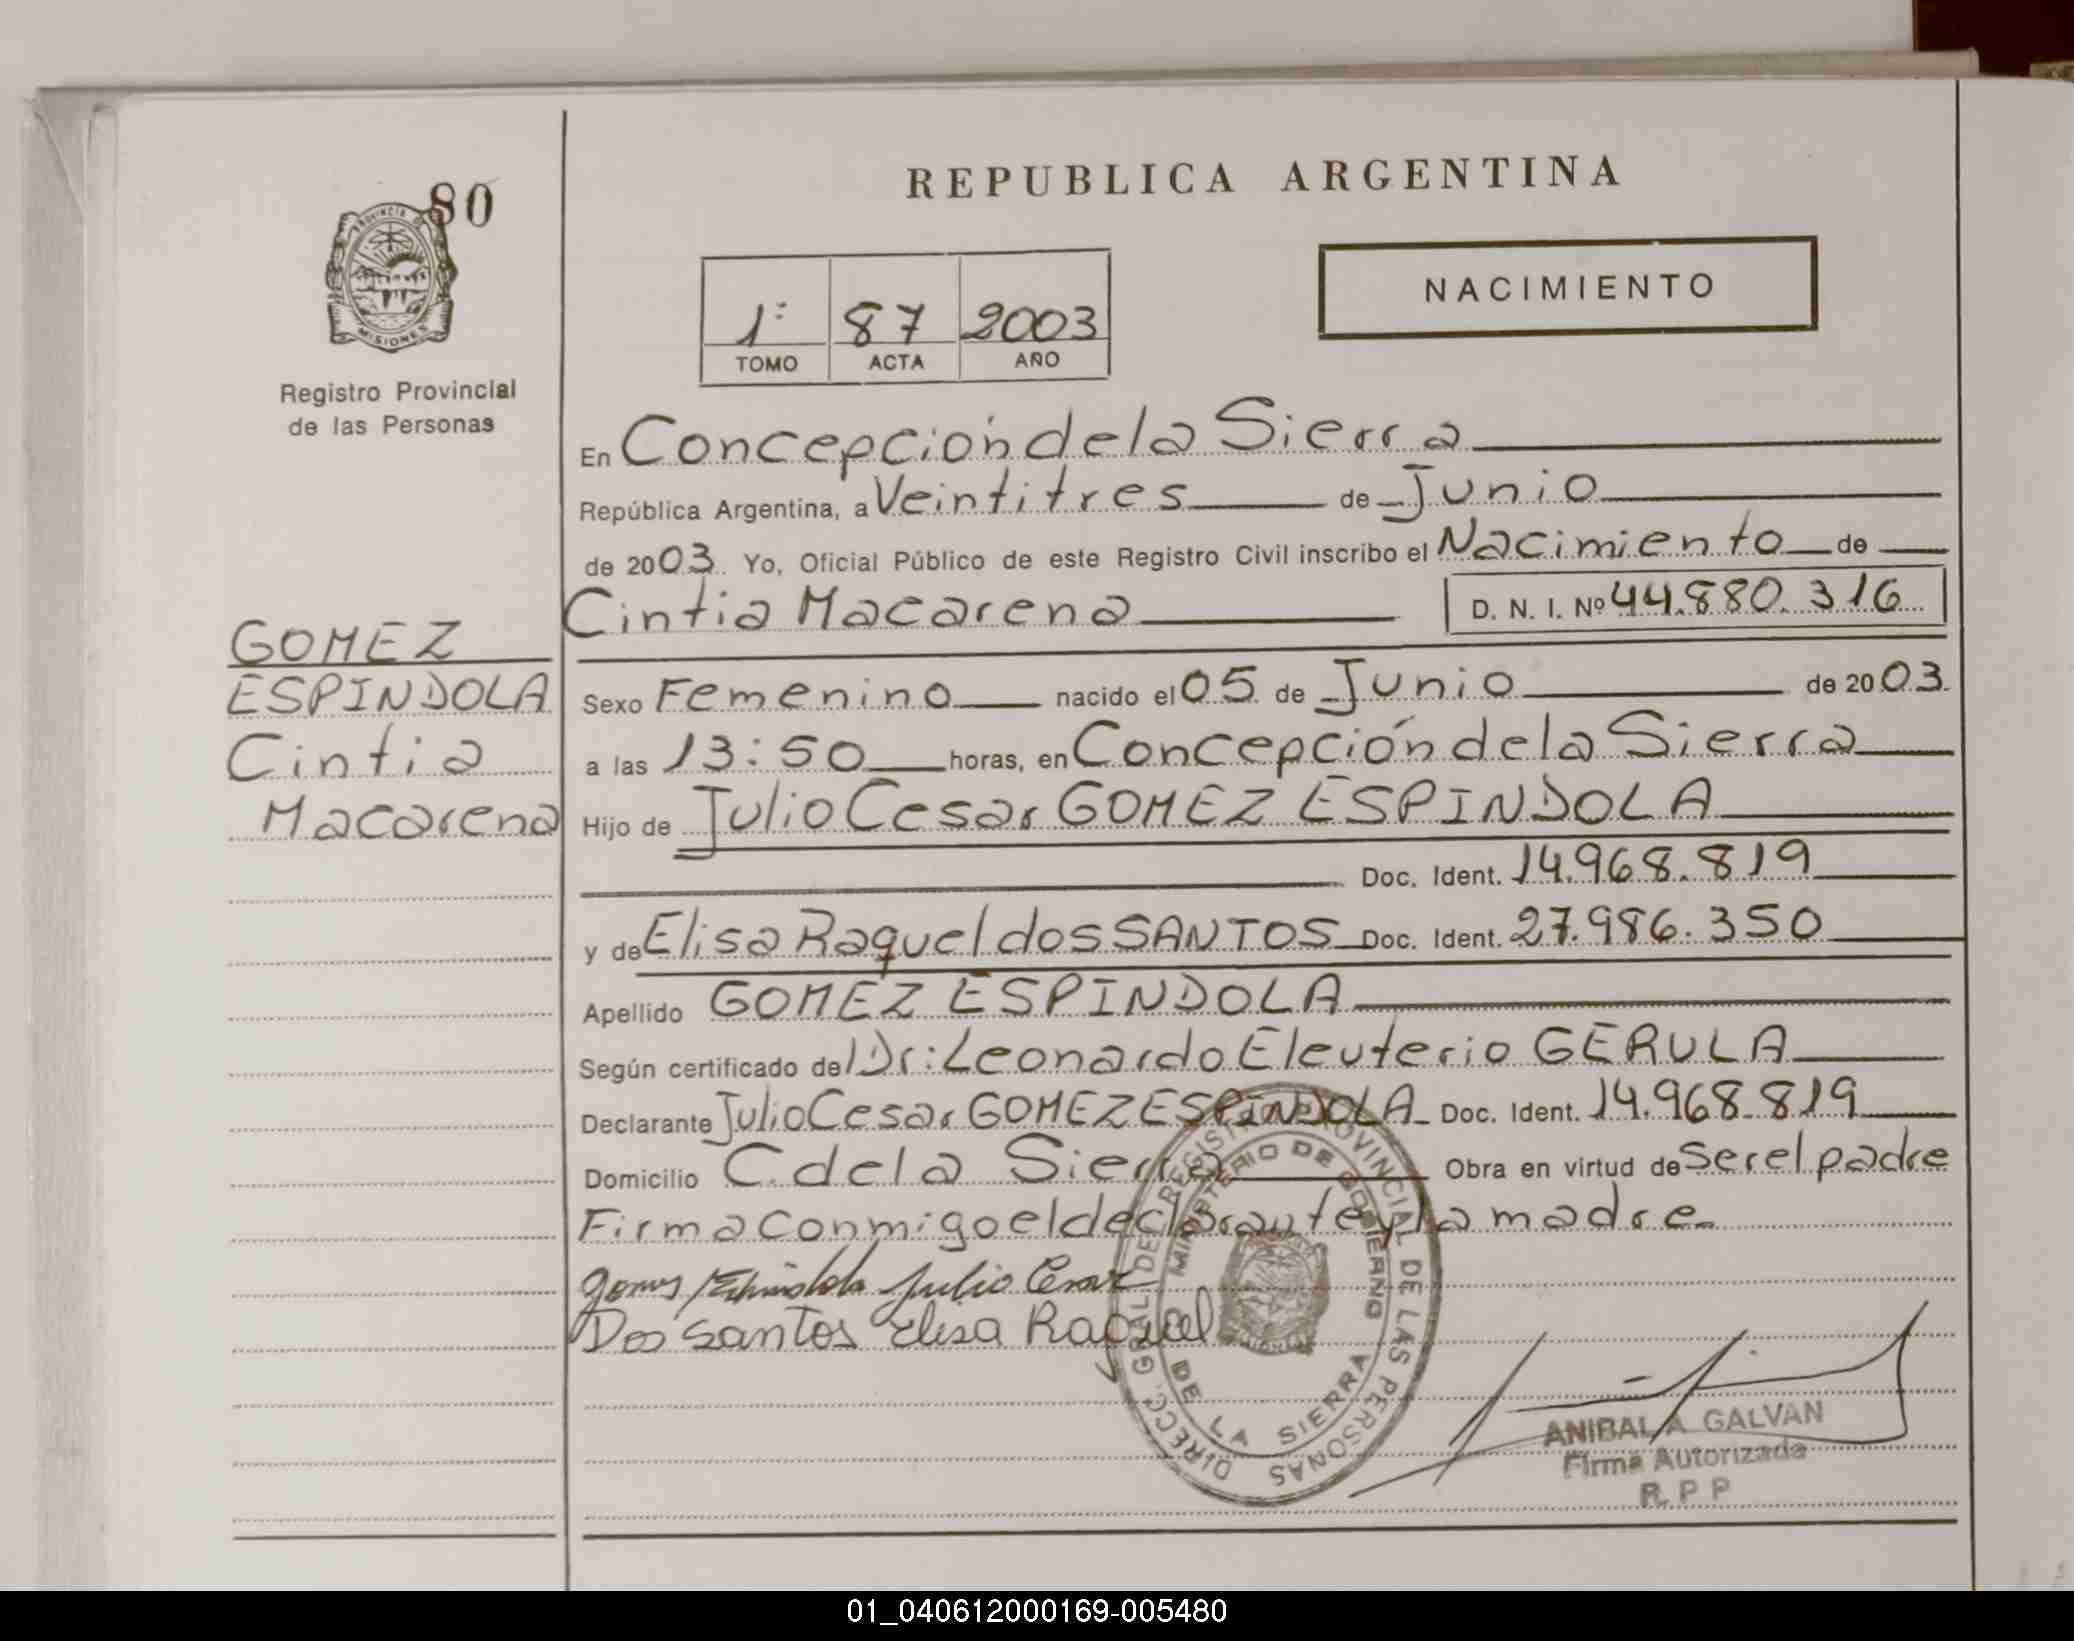 REPUBLICA ARGENTINA
80
PROVINCIA DE
MISIONES
Registro Provincial
de las Personas
NACIMIENTO
1º 87 2003
TOMO ACTA AÑO
En Concepción de la Sierra
República Argentina, a Veintitres de Junio
de 2003. Yo, Oficial Público de este Registro Civil inscribo el Nacimiento de
Cintia Macarena D. N. I. Nº 44.880.316
GOMEZ
ESPINDOLA
Cintia
Macarena
Sexo Femenino nacido el 05 de Junio de 2003.
a las 13:50 horas, en Concepción de la Sierra
Hijo de Julio Cesar GOMEZ ESPINDOLA
Doc. Ident. 14.968.819
y de Elisa Raquel dos SANTOS Doc. Ident. 27.986.350
Apellido GOMEZ ESPINDOLA
Según certificado de Dr: Leonardo Eleuterio GERULA
Declarante Julio Cesar GOMEZ ESPINDOLA Doc. Ident. 14.968.819
Domicilio C. de la Sierra Obra en virtud de Ser el padre
Firma conmigo el declarante y la madre.
Gomez Espindola Julio Cesar
Dos Santos Elisa Raquel
DIRECC. GRAL DEL REGISTRO PROVINCIAL DE LAS PERSONAS
MINISTERIO DE GOBIERNO
DE LA SIERRA
ANIBAL A GALVAN
Firma Autorizada
R. P P
01_040612000169-005480